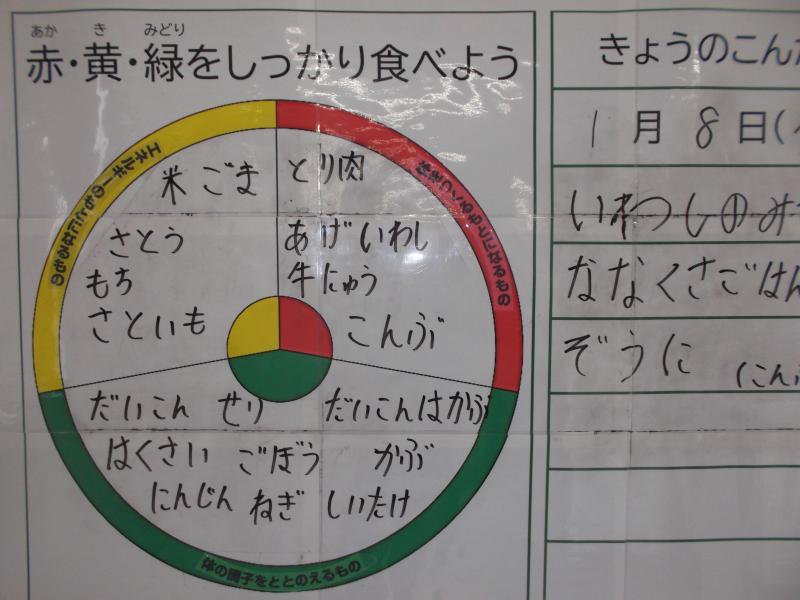 あか き みどり
赤・黄・緑をしっかり食べよう
エネルギーのもとになるもの
米 ごま
さとう
もち
さといも
とり肉
あげ いわし
牛にゅう
こんぶ
だいこん せり だいこんはかぶ
はくさい ごぼう かぶ
にんじん ねぎ しいたけ
体の調子をととのえるもの
きょうのこんだ
1月8日(
いわしのみ
ななくさごはん
ぞうに (こん